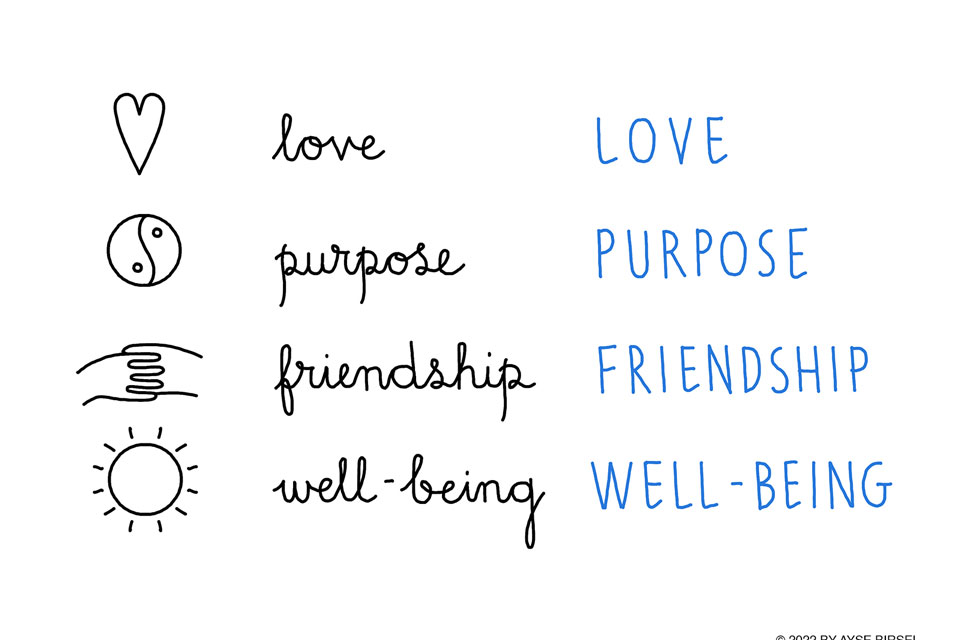 love LOVE
purpose PURPOSE
friendship FRIENDSHIP
well-being WELL-BEING
© 2022 BY AYSE BIRSEL